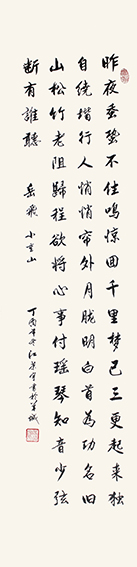 昨夜寒蛩不住鳴惊回千里梦已三更起来独
自绕堦行人悄悄帘外月胧明白首為功名旧
山松竹老阻歸程欲将心事付瑶琴知音少弦
断有誰聽 岳飛 小重山
丁酉年 江 書於羊城